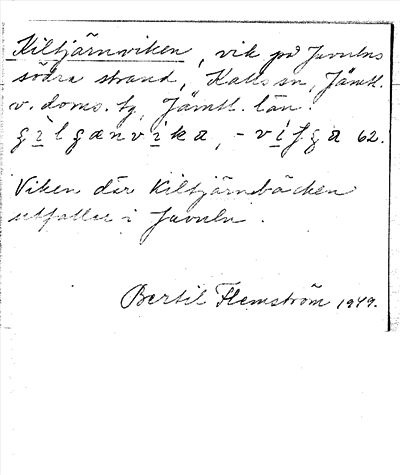 Kiltjärnviken, vik på Juvulns
södra strand, Kalls sn, Jämtl.
v. doms. tg, Jämtl. län.
62.
Viken där Kiltjärnbäcken
utfaller i Juvuln.
Bertil Flemström 1949.